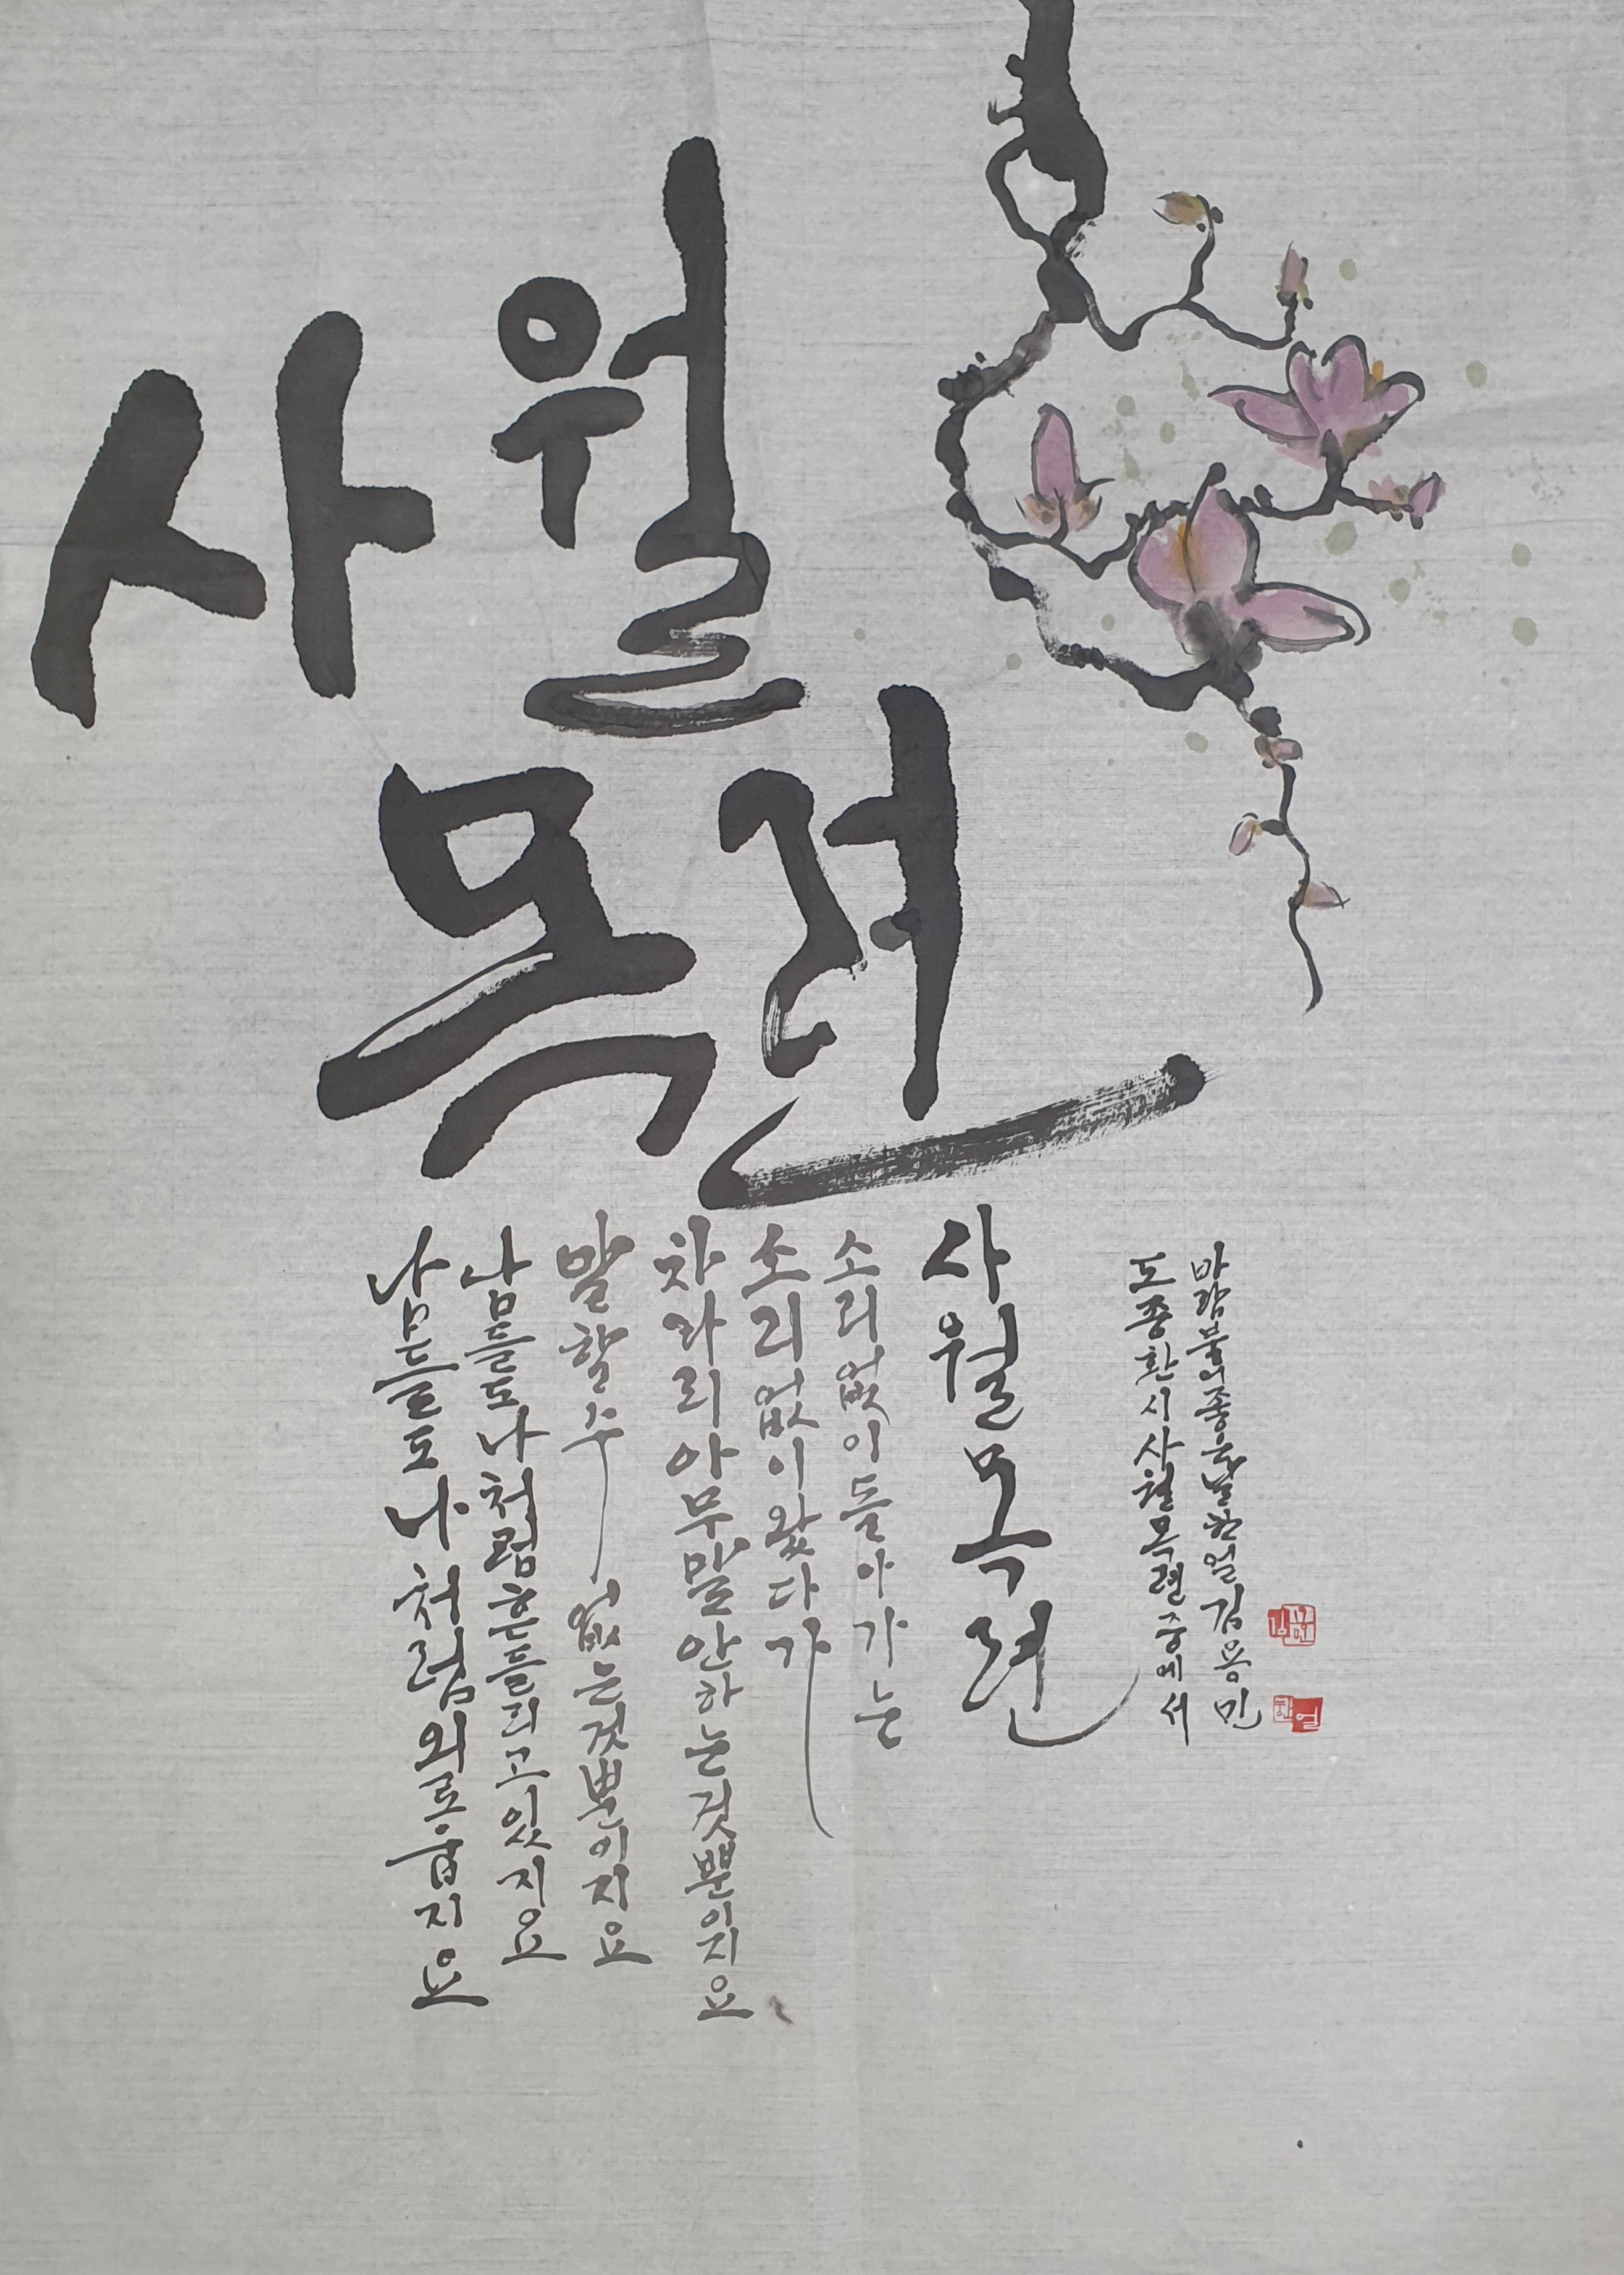 사월
목련
남들도 나처럼 외로웁지요
남들도나처럼흔들리고있지요
말할수 없는것뿐이지요
차라리아무말안하는것뿐이지요
소리없이왔다가
소리없이돌아가는
사월목련
도종환시사월목련중에서
바람 한얼
한얼